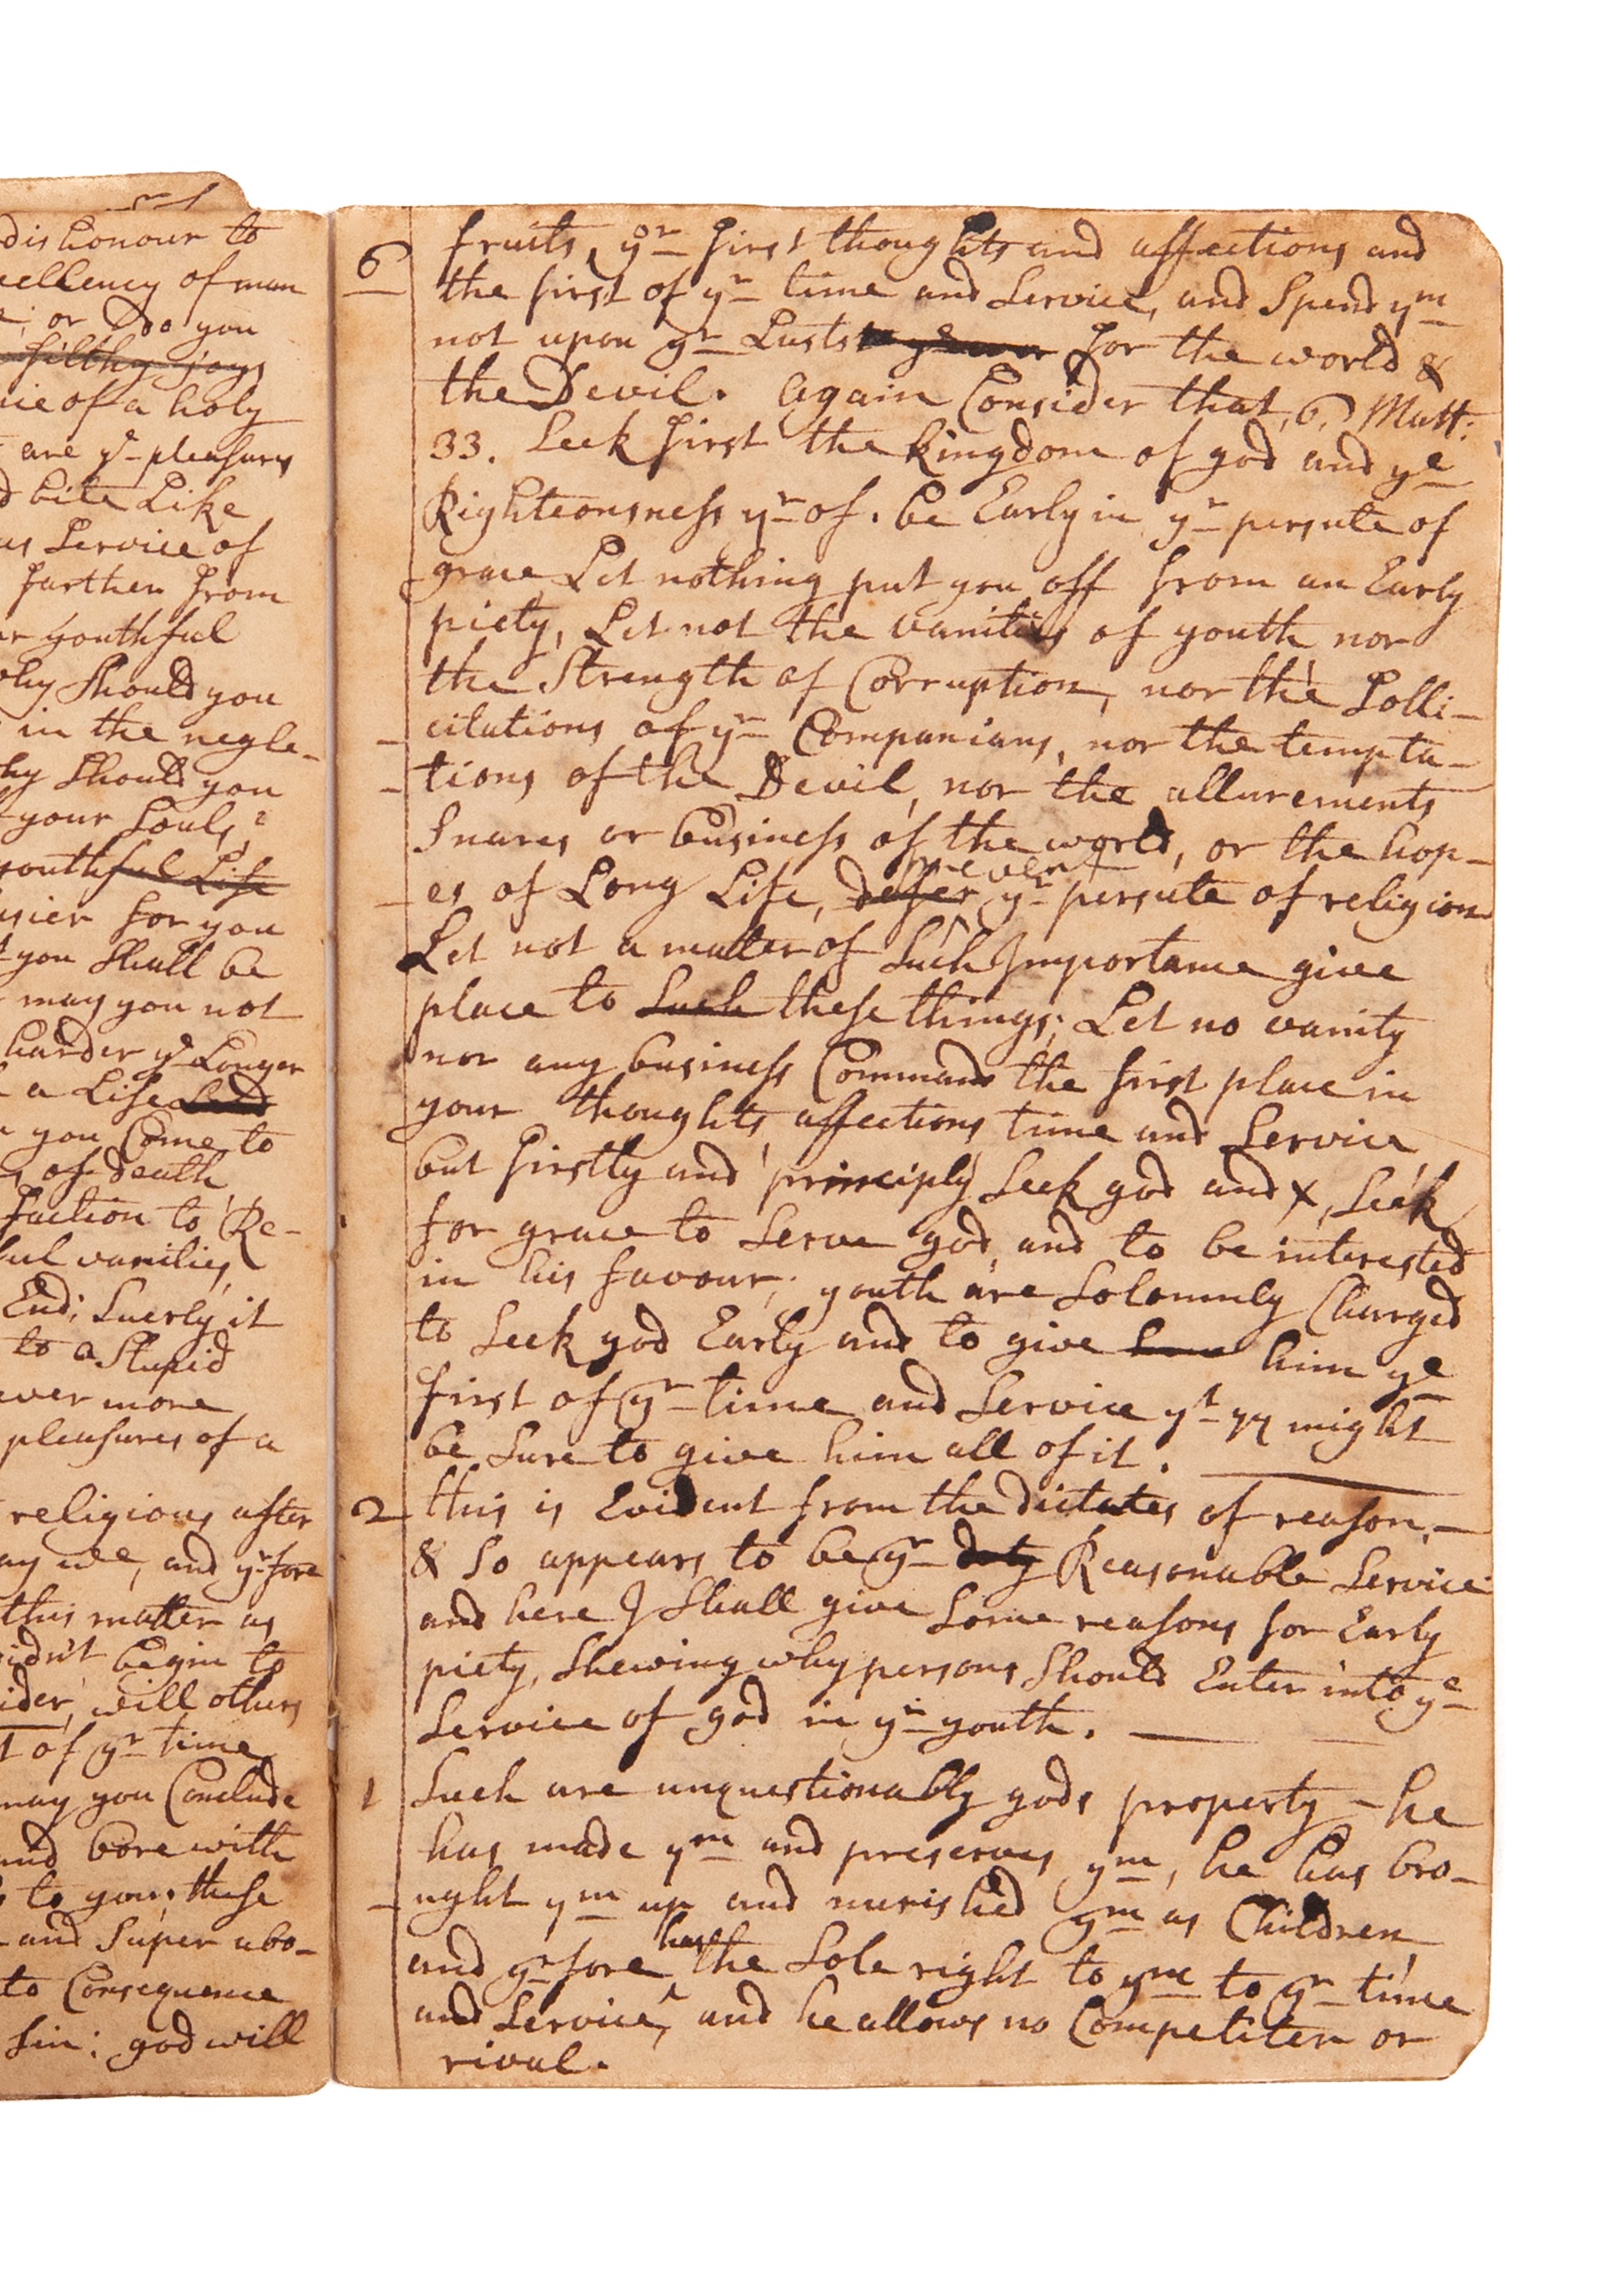 dishonour to
cellency of man
or Do you
filthy joys
of a holy
are ye pleasures
bite Like
Service of
farther from
youthful
Should you
in the negle-
Should you
your Souls?
youthful Life
for you
you Shall be
may you not
harder ye Longer
a Life
you Come to
of death
faction to Re-
vanities,
End; Suerly it
to a Stupid
ever more
pleasures of a
religious after
we, and yrfore
this matter as
didn't begin to
will others
of yr time
may you Conclude
and bore with
to you; these
and Super abo-
to Consequence
sin: god will
6
fruits, yr first thoughts and affections and
the first of yr time and Service, and Spend ym
not upon yr Lusts for the world &
the Devil. Again Consider that, 6, Matt:
33. Seek first the kingdom of god and ye
Righteousness yr of. be Early in yr persute of
grace Let nothing put you off from an Early
piety, Let not the vanities of youth nor
the Strength of Corruption, nor the Solli-
citations of yr Companians, nor the tempta-
tions of the Devil, nor the allurements
Snares or business of the world, or the hop-
prevent
es of Long Life, defer yr persute of religion
Let not a matter of Such Importance give
place to Such these things; Let no vanity
nor any business Command the first place in
your thoughts, affections time and Service
but firstly and principly Seek god and X, Seek
for grace to Serve god, and to be interested
in his favour; youth are Solomnly Charged
to Seek god Early and to give him ye
first of yr time and Service yt yy might
be Sure to give him all of it.
2 this is Evident from the dictates of reason, -
& So appears to be yr duty Reasonable Service
and here I Shall give Some reasons for Early
piety, Shewing why persons Should Enter into ye
Service of god in yr youth.
1 Such are unquestionably gods property - he
has made ym and preserves ym, he has bro-
ught ym up and nurished ym as Children,
has
and yrfore ^ the Sole right to ym to yr time
and Service, and he allows no Competiter or
rival.